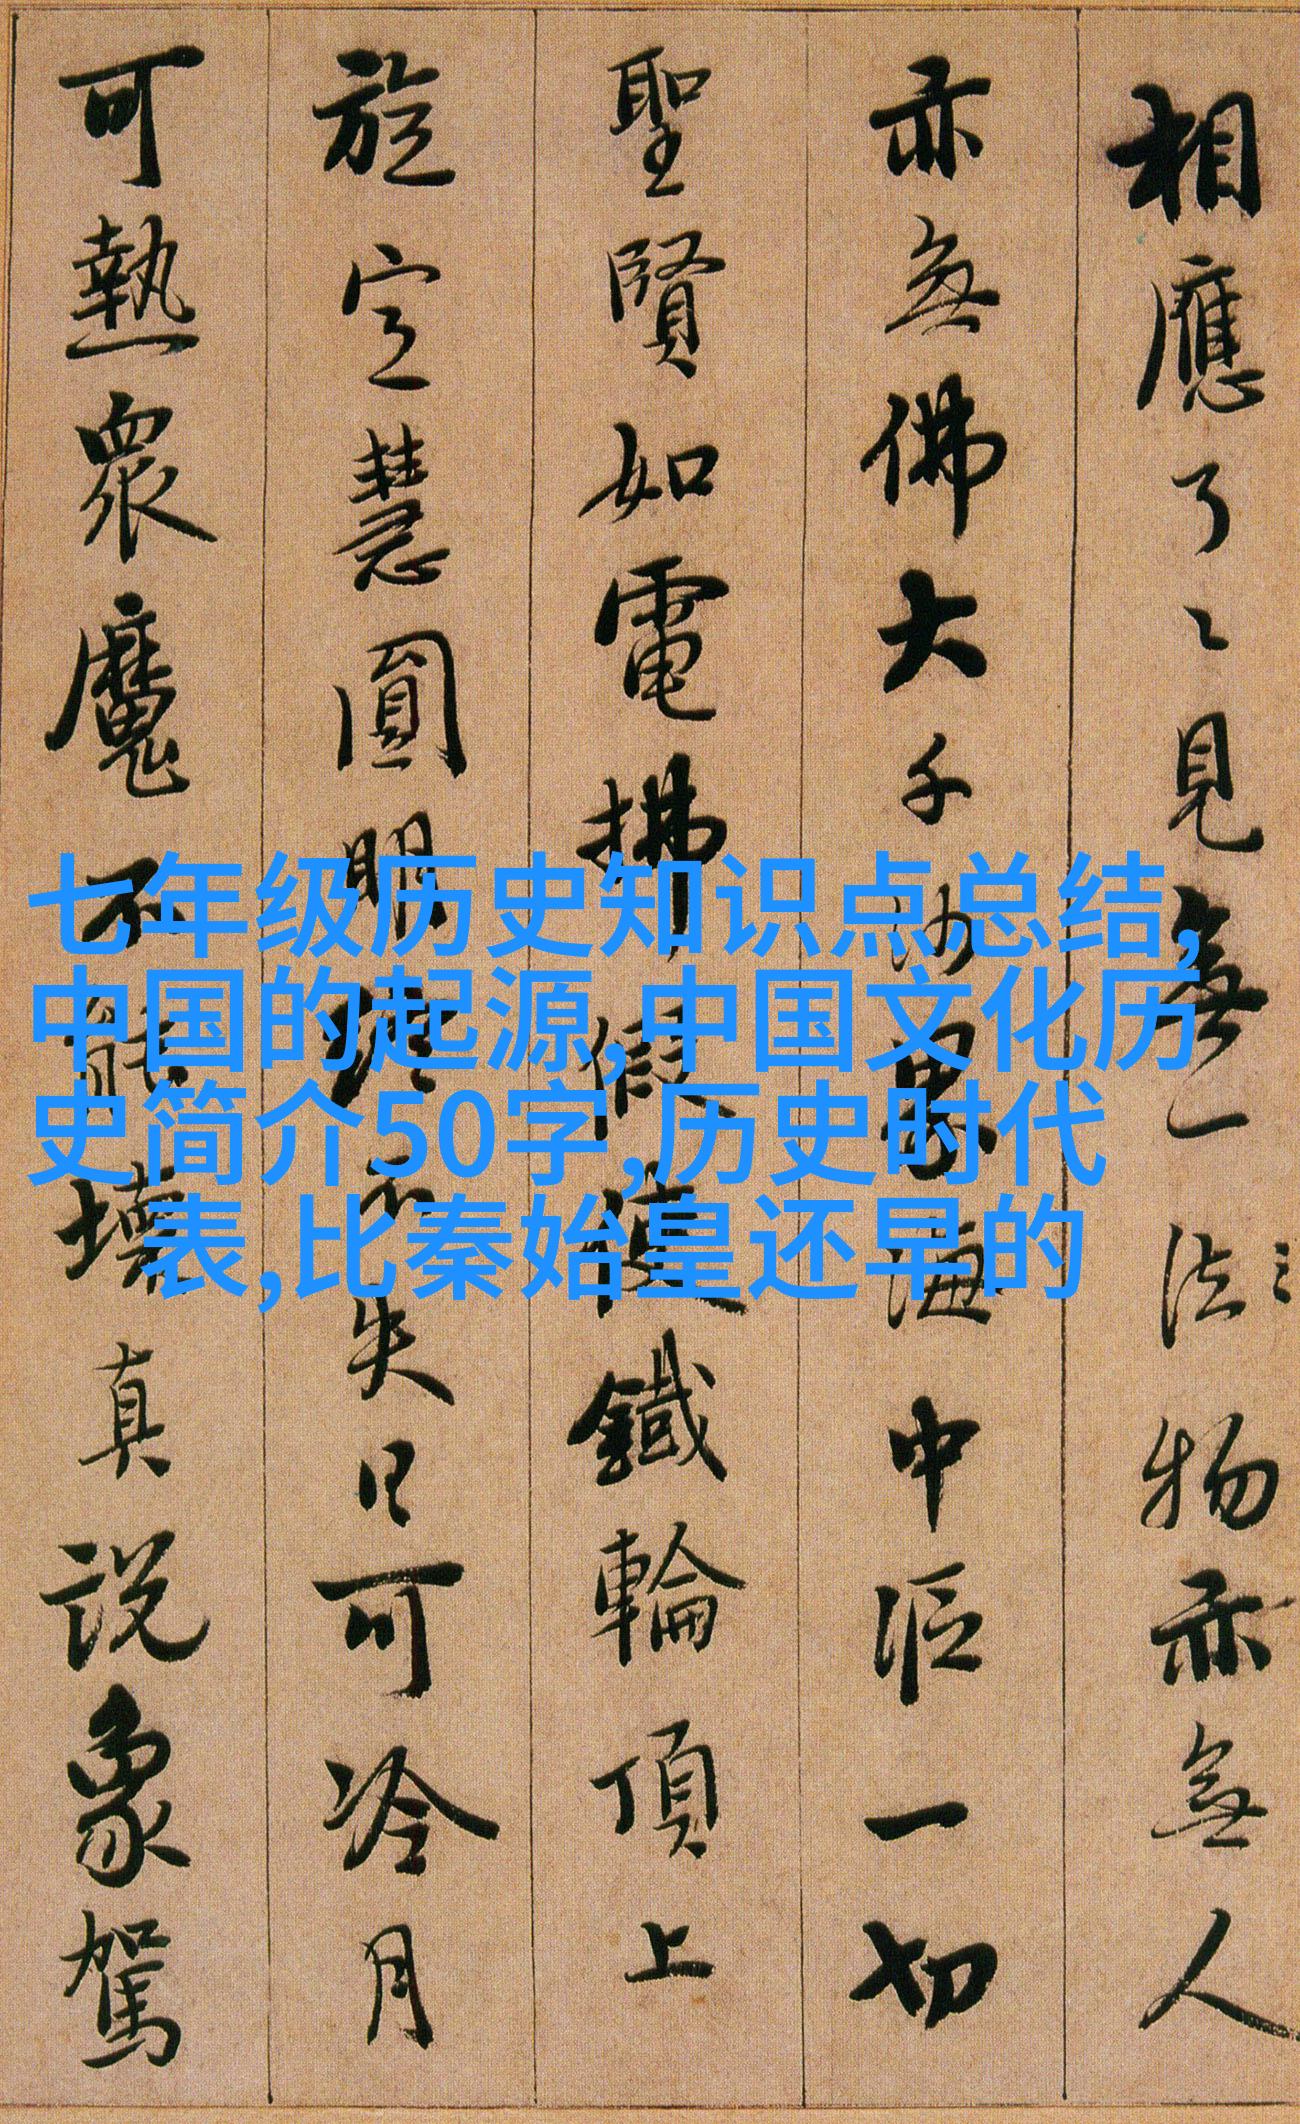 相應了〻見無一法物亦無人
亦無佛大千沙界海中漚一切
聖賢如電拂假使鐵輪頂上
旋定慧圓明終不失日可冷月
可熱衆魔不能壞真説象駕
七年级历史知识点总结,
中国的起源,中国文化历
史简介50字,历史时代
表,比秦始皇还早的